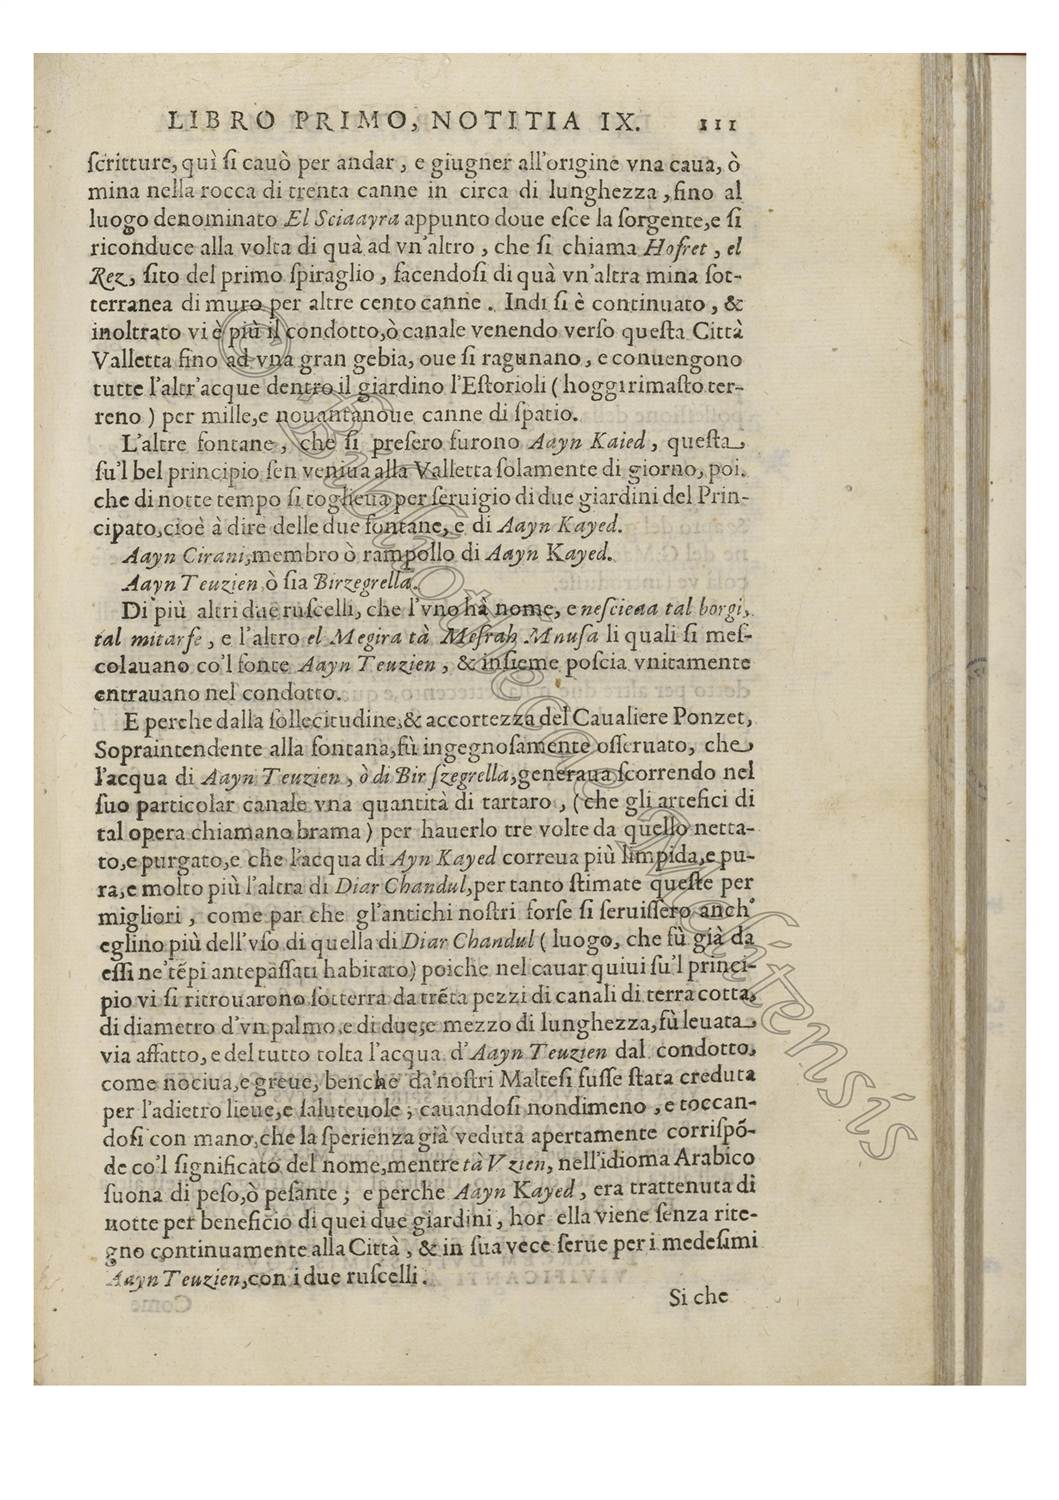 LIBRO PRIMO, NOTITIA IX. 111
ſcritture, quì ſi cauò per andar, e giugner all'origine vna caua, ò
mina nella rocca di trenta canne in circa di lunghezza, fino al
luogo denominato El Sciaayra appunto doue eſce la ſorgente, e ſi
riconduce alla volta di quà ad vn'altro, che ſi chiama Hofret, el
Rez, ſito del primo ſpiraglio, facendoſi di quà vn'altra mina ſot-
terranea di muro per altre cento canne. Indi ſi è continuato, &
inoltrato vi è più il condotto, ò canale venendo verſo queſta Città
Valletta fino ad vna gran gebia, oue ſi ragunano, e conuengono
tutte l'altr'acque dentro il giardino l'Eſtorioli (hoggi rimaſto ter-
reno) per mille, e nouantanoue canne di ſpatio.
L'altre fontane, che ſi preſero furono Aayn Kaied, queſta
ſu'l bel principio ſen veniua alla Valletta ſolamente di giorno, poi.
che di notte tempo ſi toglieua per ſeruigio di due giardini del Prin-
cipato, cioè à dire delle due fontane, e di Aayn Kayed.
Aayn Cirani, membro ò rampollo di Aayn Kayed.
Aayn Teuzien ò ſia Birzegrella.
Di più altri due ruſcelli, che l'vno hà nome, e neſciena tal borgi,
tal mitarfe, e l'altro el Megira tà Meſrah Mnuſa li quali ſi meſ-
colauano co'l fonte Aayn Teuzien, & inſieme poſcia vnitamente
entrauano nel condotto.
E perche dalla ſollecitudine, & accortezza del Caualiere Ponzet,
Sopraintendente alla fontana, fù ingegnoſamente oſſeruato, che
l'acqua di Aayn Teuzien, ò di Bir ſzegrella, generaua ſcorrendo nel
ſuo particolar canale vna quantità di tartaro, (che gli artefici di
tal opera chiamano brama) per hauerlo tre volte da quello netta-
to, e purgato, e che l'acqua di Ayn Kayed correua più limpida, e pu-
ra, e molto più l'altra di Diar Chandul, per tanto ſtimate queſte per
migliori, come par che gl'antichi noſtri forſe ſi ſeruiſſero anch'
eglino più dell'vſo di quella di Diar Chandul (luogo, che fù già da
eſſi ne'tẽpi antepaſſati habitato) poiche nel cauar quiui ſu'l princi-
pio vi ſi ritrouarono ſotterra da trẽta pezzi di canali di terra cotta,
di diametro d'vn palmo, e di due, e mezzo di lunghezza, fù leuata
via affatto, e del tutto tolta l'acqua d'Aayn Teuzien dal condotto,
come nociua, e greue, benche da'noſtri Malteſi fuſſe ſtata creduta
per l'adietro lieue, e ſaluteuole; cauandoſi nondimeno, e toccan-
doſi con mano, che la ſperienza già veduta apertamente corriſpõ-
de co'l ſignificato del nome, mentre tà Vzien, nell'idioma Arabico
ſuona di peſo, ò peſante; e perche Aayn Kayed, era trattenuta di
notte per beneficio di quei due giardini, hor ella viene ſenza rite-
gno continuamente alla Città, & in ſua vece ſerue per i medeſimi
Aayn Teuzien, con i due ruſcelli.
Si che
© Bibliotheca Melitensis